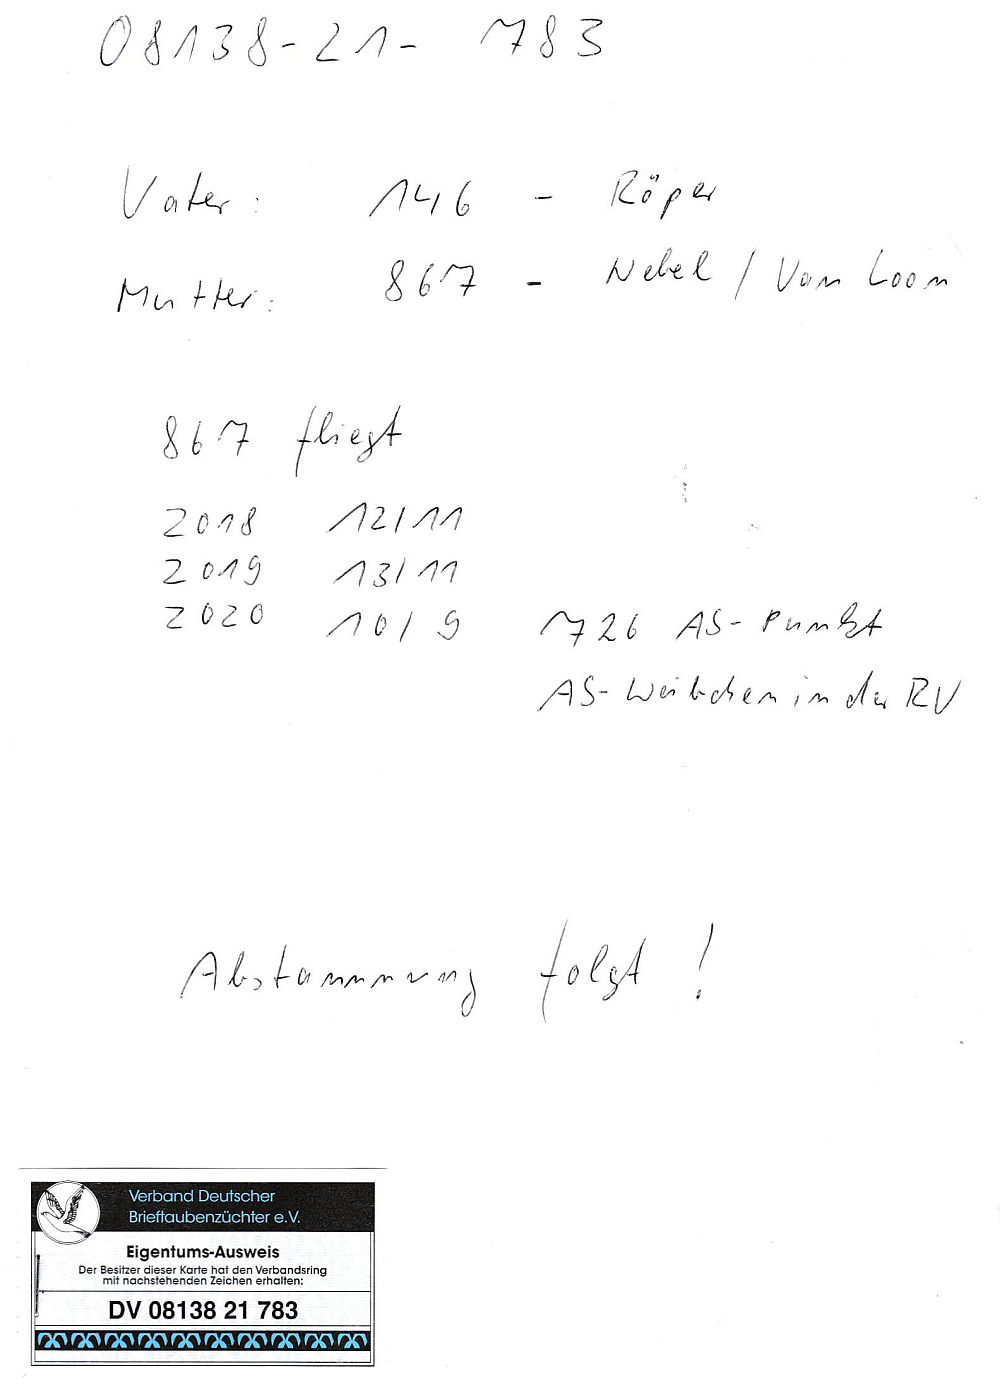 08138-21- 783
Vater: 146 - Röper
Mutter: 867 - Nebel / Vam Loon
867 fliegt
2018 12/11
2019 13/11
2020 10/9 726 AS-Punkt
AS-Weibchen in der RV
Abstammung folgt!
Verband Deutscher
Brieftaubenzüchter e.V.
Eigentums-Ausweis
Der Besitzer dieser Karte hat den Verbandsring
mit nachstehenden Zeichen erhalten:
DV 08138 21 783